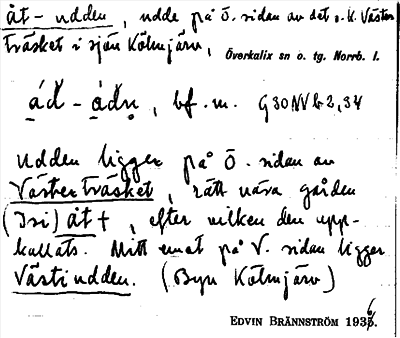 åt-udden, udde på ö. sidan av det s.k. Väster
träsket i sjön Kölmjärv,
Överkalix sn o. tg. Norrb. l.
bf. m.
Udden ligger på Ö. sidan av
Västerträsket, rätt nära gården
åt+, efter vilken den upp-
kallats. Mitt emot på V. sidan ligger
Västiudden. (Byn Kölmjärv)
EDVIN BRÄNNSTRÖM 1936.